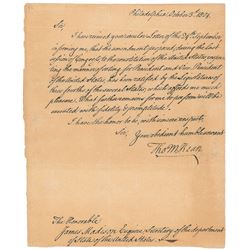 Philadelphia, October 3d. 1804.
Sir,
I have received your circular Letter of the 24th September
informing me, that the amendment proposed, during the last
session of Congress to the constitution of the United States, respecting
the manner of voting for President and Vice President
of the United States, has been ratified by the Legislatures of
three fourths of the several States, which affords me much
pleasure. What further remains for me to perform will be ex-
ecuted with fidelity & promptitude.
I have the honor to be, with sincere respect,
Sir, Your obedient humble servant
Tho M:Kean
The Honorable
James Madison Esquire, Secretary of the department
of State of the United States.